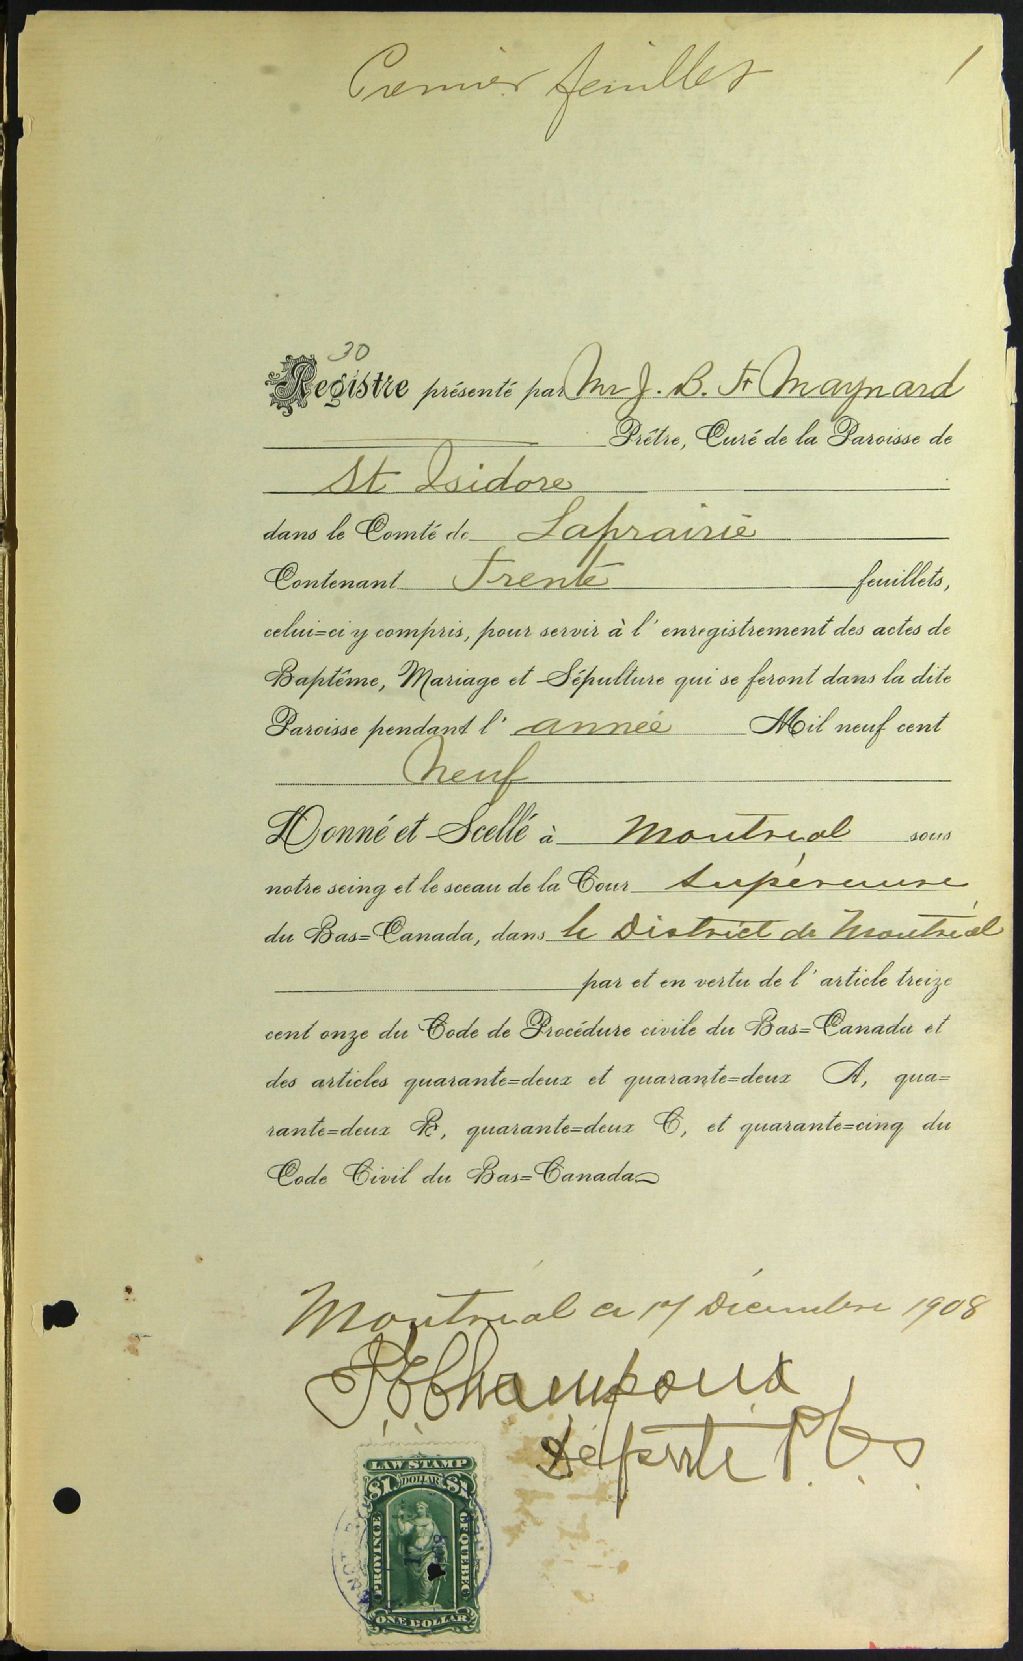 Premier feuillet
1
30
Registre présenté par Mr J. B. Fr Maynard
Prêtre, Curé de la Paroisse de
St Isidore
dans le Comté de Laprairie
Contenant Trente feuillets,
celui=ci y compris, pour servir à l'enregistrement des actes de
Baptême, Mariage et Sépulture qui se feront dans la dite
Paroisse pendant l'année Mil neuf cent
Neuf
Donné et Scellé à Montreal sous
notre seing et le sceau de la Cour Supérieure
du Bas=Canada, dans le District de Montréal
par et en vertu de l'article treize
cent onze du Code de Procédure civile du Bas=Canada et
des articles quarante=deux et quarante=deux A, qua=
rante=deux B, quarante=deux C, et quarante=cinq du
Code Civil du Bas=Canada
Montréal ce 17 Décembre 1908
Champoux
Député P.C.S.
LAW STAMP
$1 DOLLAR $1
PROVINCE OF QUEBEC
ONE DOLLAR